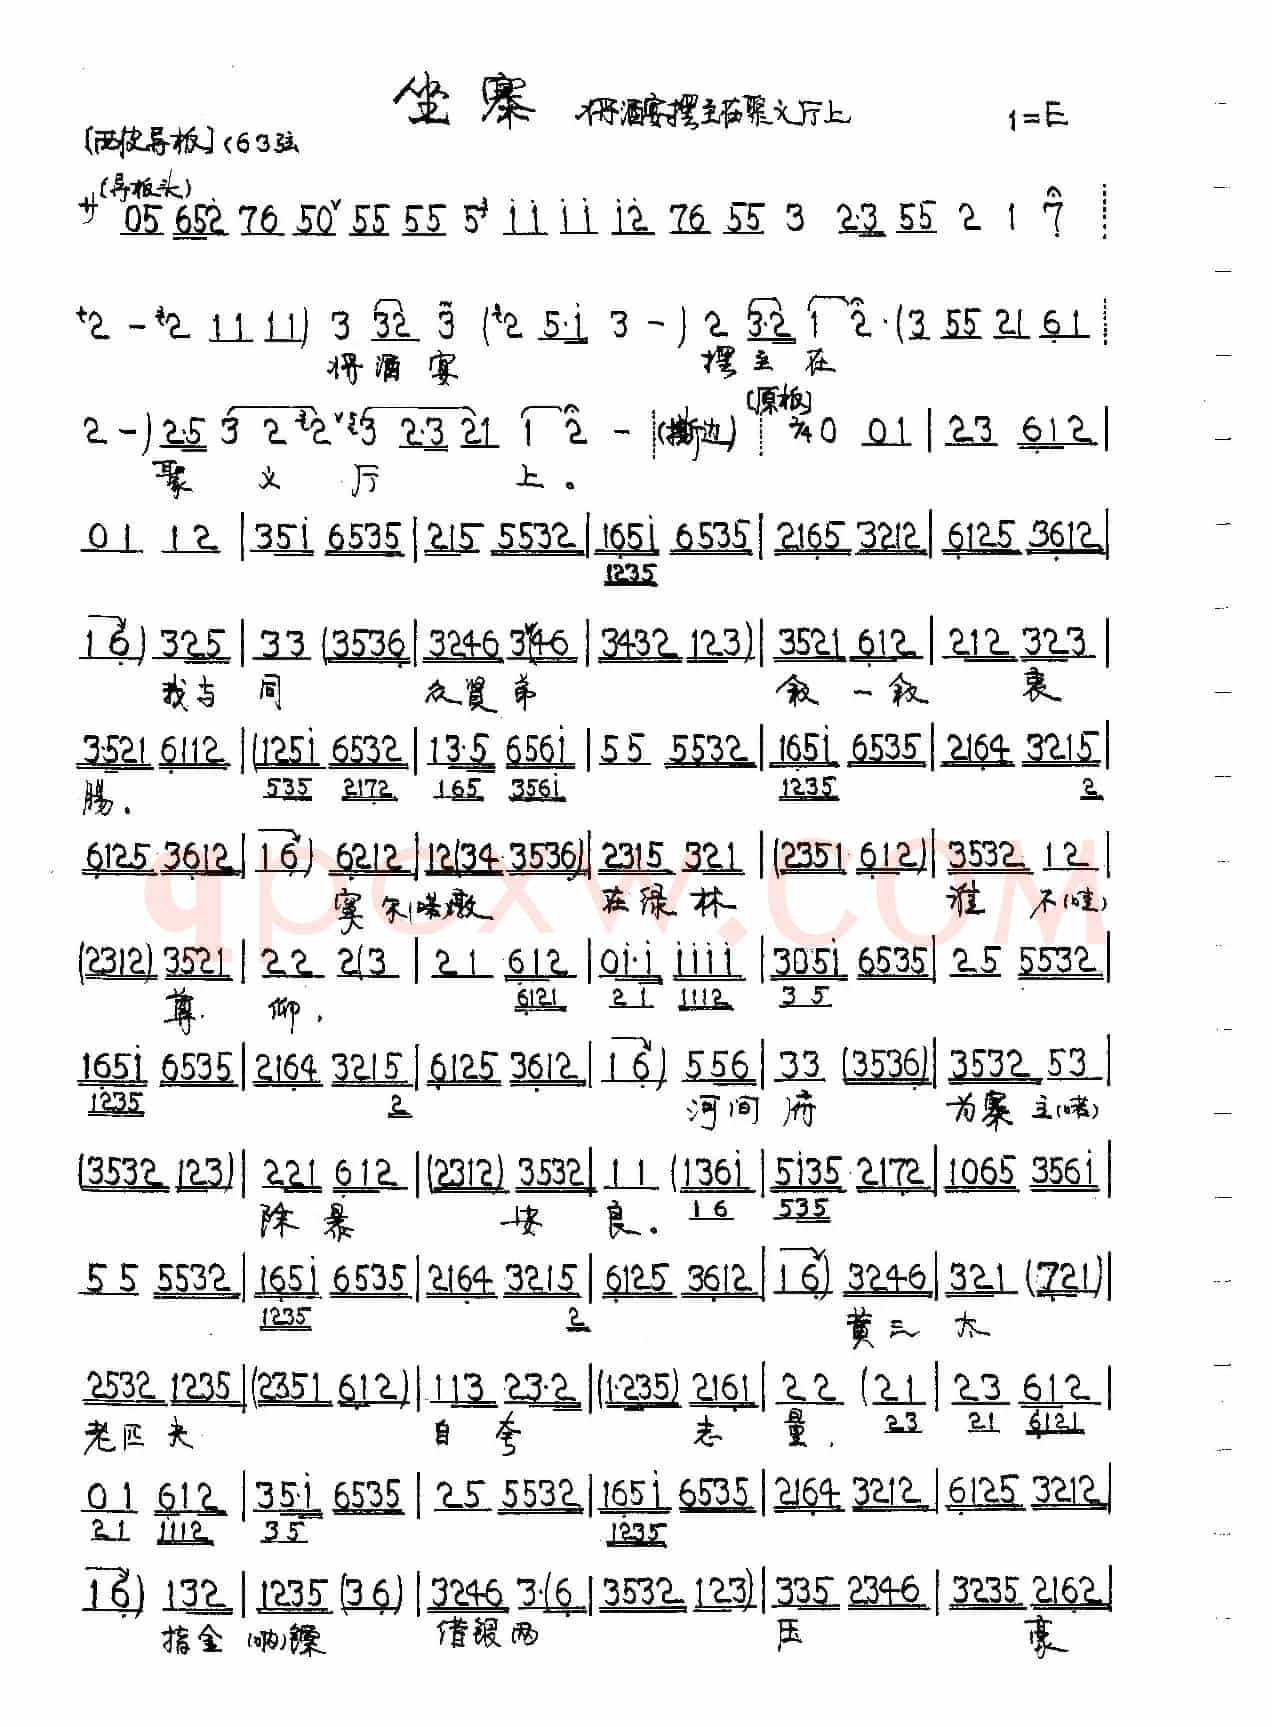 坐寨 将酒宴摆至在聚义厅上 1=E
[西皮导板] <63弦
(导板头)
サ 05 652 76 50 55 55 5 i i i i i2 76 55 3 2·3 55 2 1 7
2 - 2 11 11) 3 32 3 (2 5·i 3 -) 2 3·2 1 2·(3 55 21 61
将 酒 宴 摆 至 在
[原板]
2 -) 2·5 3 2 2 3 2·3 21 1 2 - (撕边) 2/4 0 01 | 23 612 |
聚 义 厅 上。
01 12 | 35i 6535 | 215 5532 | 165i 6535 | 2165 3212 | 6125 3612 |
1235
16) 325 | 33 (3536 | 3246 346 | 3432 123) | 3521 612 | 212 323 |
我与 同 众贤弟 叙一叙 衷
3·521 6112 | (125i 6532 | 13·5 656i | 55 5532 | 165i 6535 | 2164 3215 |
肠. 535 2172 165 356i 1235 2
6125 3612 | 16) 6212 | 12(34 3536) | 2315 321 | (2351 612) | 3532 12 |
窦尔(喏)墩 在绿林 谁 不(哇)
(2312) 3521 | 22 2(3 | 21 612 | 0i·i iiii | 305i 6535 | 25 5532 |
尊 仰, 6121 21 1112 35
165i 6535 | 2164 3215 | 6125 3612 | 16) 556 | 33 (3536) | 3532 53 |
1235 2 河间 府 为寨主(喏)
(3532 123) | 221 612 | (2312) 3532 | 11 (136i | 5i35 2172 | 1065 356i |
除暴 安 良。 16 535
55 5532 | 165i 6535 | 2164 3215 | 6125 3612 | 16) 3246 | 321 (721) |
1235 2 黄三 太
2532 1235 | (2351 612) | 113 23·2 | (1·235) 2161 | 22 (21 | 23 612 |
老匹夫 自 夸 志 量, 23 21 6121
01 612 | 35·i 6535 | 25 5532 | 165i 6535 | 2164 3212 | 6125 3212 |
21 1112 35 1235
16) 132 | 1235 (36) | 3246 3·(6 | 3532 123) | 335 2346 | 3235 2162 |
指金(呐)镖 借银两 压 豪
qpcxw.COM